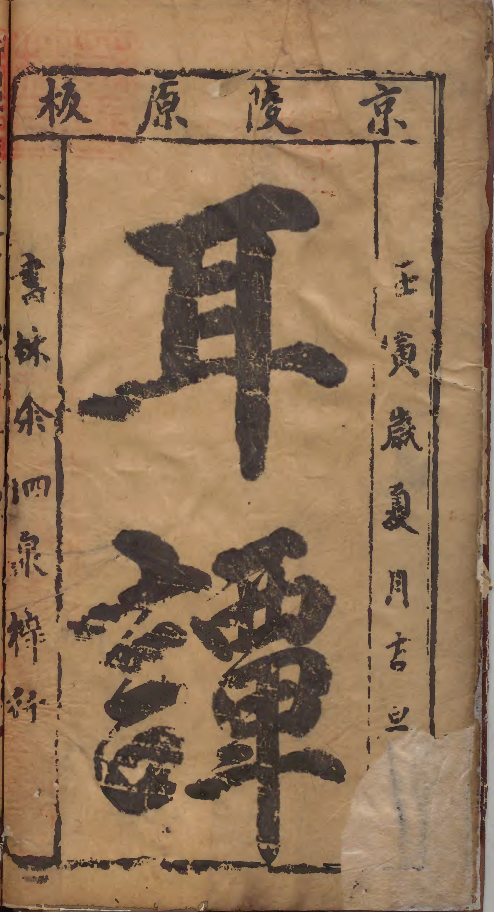 京陵原板
壬寅歲夏月吉旦
耳譚
書林余泗泉梓行